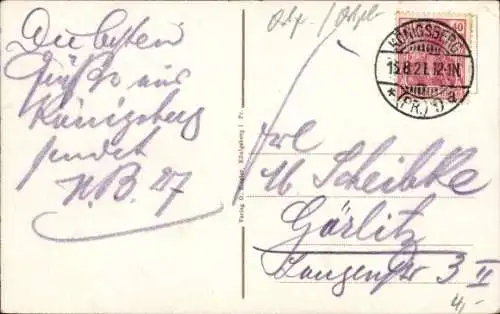 Die besten
Grüße aus
Königsberg
sendet
N.B. 27
Verlag O. Ziegler, Königsberg i. Pr.
Ostpr. /
10
KÖNIGSBERG
13.8.21. 12-1N
* (PR.) 1) a
Frl.
M Scheibke
Görlitz
Langenstr 3 II
4,-